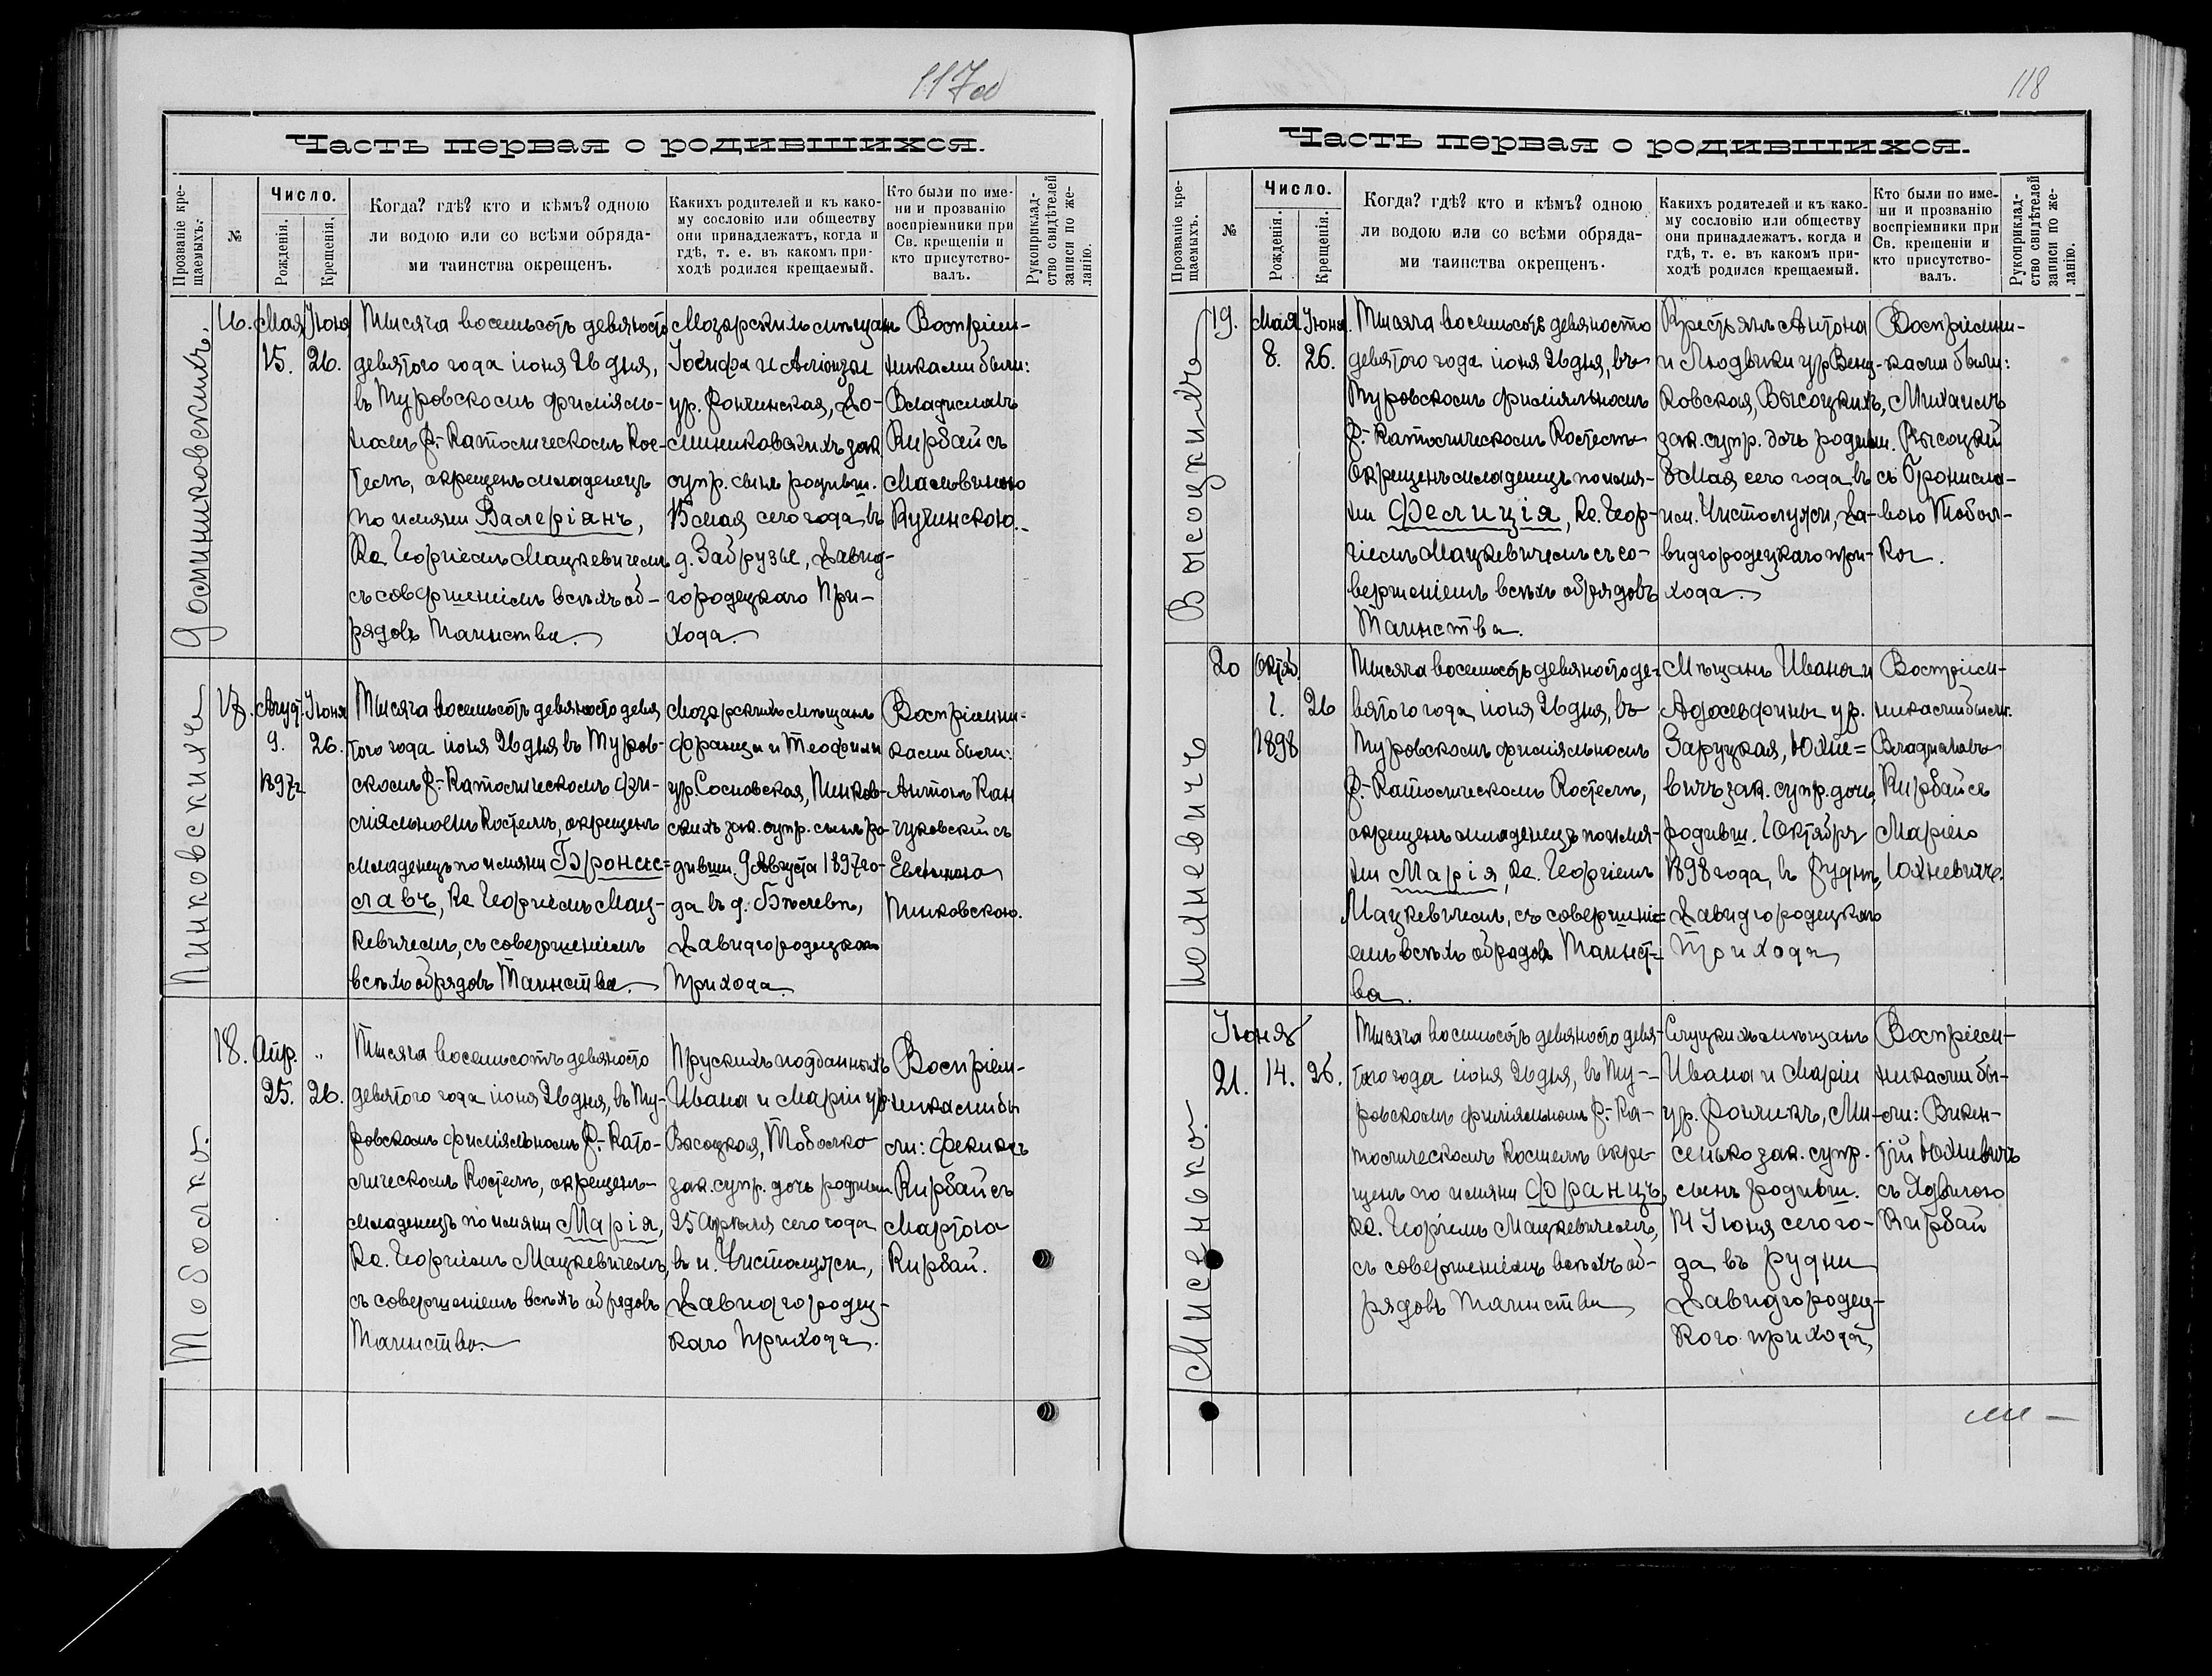 117об
Часть первая о родившихся.
Прозваніе кре-
щаемыхъ.
№
Число.
Рожденія.
Крещенія.
Когда? гдѣ? кто и кѣмъ? одною
ли водою или со всѣми обряда-
ми таинства окрещенъ.
Какихъ родителей и къ како-
му сословію или обществу
они принадлежатъ, когда и
гдѣ, т. е. въ какомъ при-
ходѣ родился крещаемый.
Кто были по име-
ни и прозванію
воспріемники при
Св. крещеніи и
кто присутство-
валъ.
Рукоприклад-
ство свидѣтелей
записи по же-
ланію.
Доминиковскихъ
16.
Мая
15.
Іюня
26.
Тысяча восемьсотъ девяносто
девятого года іюня 26 дня,
въ Туровскомъ филіяль-
номъ Р.-Католическомъ Кос-
телѣ, окрещенъ младенецъ
по имяни Валеріанъ,
Кс. Георгіемъ Мацкевичемъ
съ совершеніемъ всѣхъ об-
рядовъ Таинства.
Мозырскихъ мѣщанъ
Іосифа и Алоизы
ур. Рончинская, До-
миниковскихъ зак.
супр. сынъ родивш.
15 мая сего года въ
д. Забрузье, Давид-
городецкаго При-
хода.
Воспріем-
никами были:
Владиславъ
Кирбай съ
Мальвиною
Кучинскою.
Пинковскихъ
17.
Август.
9.
1897 г.
Іюня
26.
Тысяча восемьсотъ девяносто девя
того года іюня 26 дня въ Туров-
скомъ Р.-Католическомъ фи-
ліяльномъ Костелѣ, окрещенъ
младенецъ по имяни Бронис=
лавъ, Кс. Георгіемъ Мац-
кевичемъ, съ совершеніемъ
всѣхъ обрядовъ Таинства.
Мозырскихъ мѣщанъ
Франца и Теофили
ур. Сосновская, Пинков-
скихъ зак. супр. сынъ ро-
дивши. 9 Августа 1897 го-
да въ д. Бѣлевѣ,
Давидгородецкаго
прихода.
Воспріемни-
ками были:
Антонъ Кан
чуковскій съ
Евелиною
Пинковскою.
Тоболко.
18.
Апр.
25.
"
26.
Тысяча восемьсотъ девяносто
девятого года іюня 26 дня, въ Ту-
ровскомъ филіяльномъ Р.-Като-
лическомъ Костелѣ, окрещенъ
младенецъ по имяни Марія,
Кс. Георгіемъ Мацкевичемъ,
съ совершеніемъ всѣхъ обрядовъ
Таинства.
Прускихъ подданныхъ
Ивана и Маріи ур.
Высоцкая, Тоболко
зак. супр. дочь родивш.
25 Апрѣля сего года
въ и. Чистолужи,
Давидгородец-
каго Прихода.
Воспріем-
никами бы
ли: Феликсъ
Кирбай съ
Мартою
Кирбай.
118
Часть первая о родившихся.
Прозваніе кре-
щаемыхъ.
№
Число.
Рожденія.
Крещенія.
Когда? гдѣ? кто и кѣмъ? одною
ли водою или со всѣми обряда-
ми таинства окрещенъ.
Какихъ родителей и къ како-
му сословію или обществу
они принадлежатъ. когда и
гдѣ, т. е. въ какомъ при-
ходѣ родился крещаемый.
Кто были по име-
ни и прозванію
воспріемники при
Св. крещеніи и
кто присутство-
валъ.
Рукоприклад-
ство свидѣтелей
записи по же-
ланію.
Высоцкихъ
19.
Мая
8.
Іюня.
26.
Тысяча восемьсотъ девяносто
девятого года іюня 26 дня, въ
Туровскомъ филіяльномъ
Р.-Католическомъ Костелѣ
окрещенъ младенецъ по имя-
ни Фелиція, Кс. Геор-
гіемъ Мацкевичемъ съ со-
вершеніемъ всѣхъ обрядовъ
Таинства.
Крестьянъ Антона
и Людвики ур Венц-
ковская, Высоцкихъ,
зак. супр. дочь родивш.
8 Мая сего года въ
им. Чистолужи, Да-
видгородецкаго при-
хода.
Воспріемни-
ками были:
Михаилъ
Высоцкій
съ Бронисла-
вою Тобол-
ко.
Юхневичъ
20
Октяб
1.
1898
26
Тысяча восемьсотъ девяносто де-
вятого года іюня 26 дня, въ
Туровскомъ филіяльномъ
Р.-Католическомъ Костелѣ,
окрещенъ младенецъ по имя-
ни Марія, Кс. Георгіемъ
Мацкевичемъ, съ совершені=
емъ всѣхъ обрядовъ Таинст=
ва.
Мѣщанъ Ивана и
Адольфины ур.
Заруцкая, Юхне=
вичъ зак. супр. дочь
родивш. 1 Октября
1898 года, въ Руднѣ,
Давидгородецкаго
Прихода
Воспріем-
никами были:
Владиславъ
Кирбай съ
Маріею
Юхневичъ.
Мисенько.
Іюня
21.
14.
26.
Тысяча восемьсотъ девяносто девя-
того года іюня 26 дня, въ Ту-
ровскомъ филіяльномъ Р.-Ка-
толическомъ Костелѣ окре-
щенъ по имяни Францъ,
Кс. Георгіемъ Мацкевичемъ,
съ совершеніемъ всѣхъ об-
рядовъ Таинства
Слуцкихъ мѣщанъ
Ивана и Маріи
ур. Рончикъ, Ми-
сенько зак. супр.
сынъ родивш.
14 Іюня сего го-
да въ Рудни
Давидгородец-
кого прихода,
Воспріем-
никами бы-
ли: Викен-
тій Юхневичъ
съ Ядвигою
Кирбай